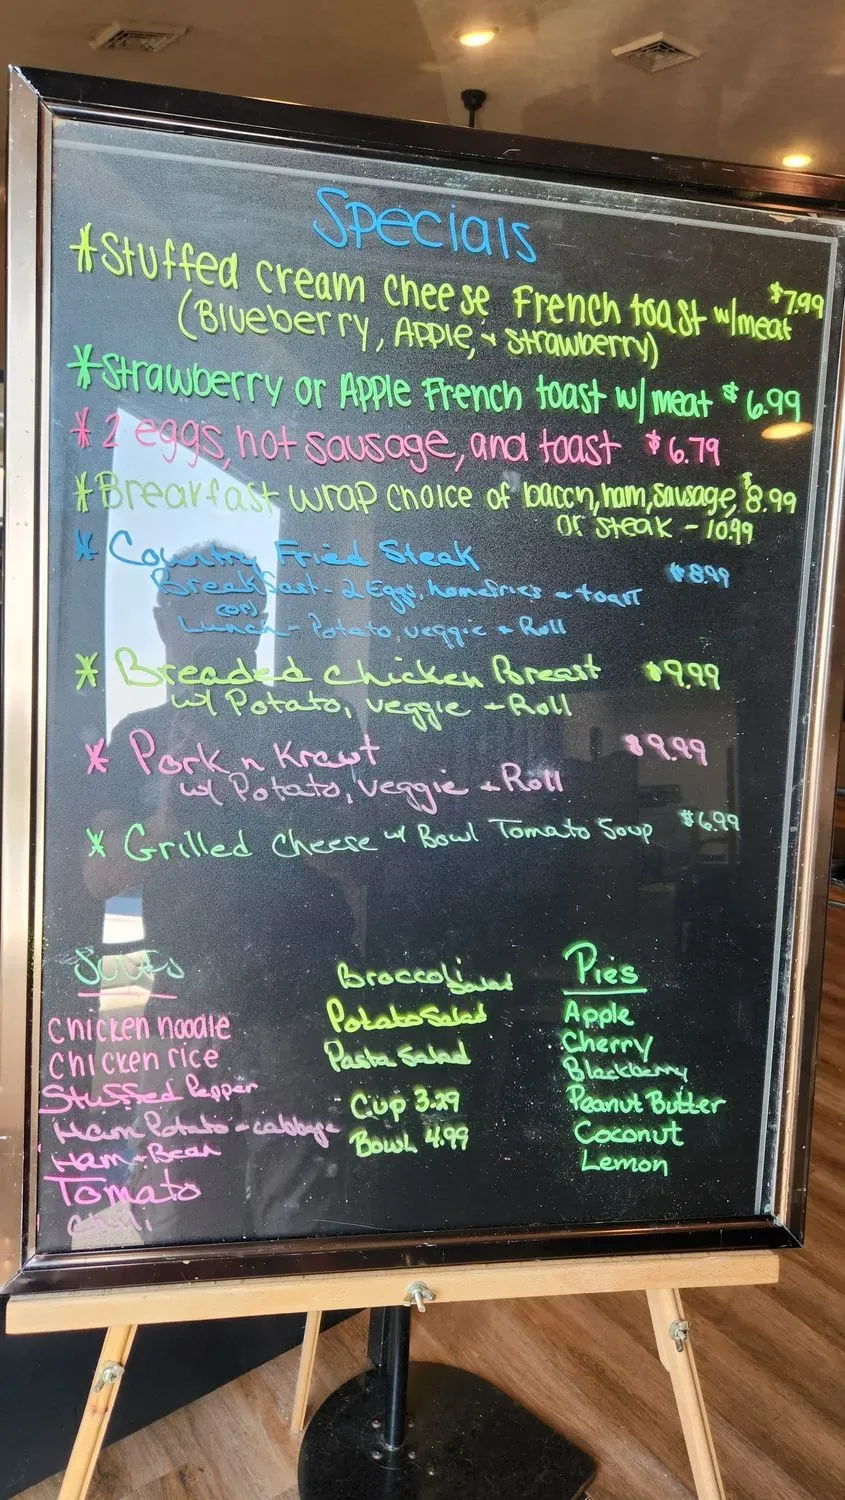 Specials
*Stuffed cream cheese French toast w/meat $7.99
(Blueberry, Apple, + Strawberry)
*Strawberry or Apple French toast w/ meat $6.99
*2 eggs, hot sausage, and toast $6.79
*Breakfast wrap choice of bacon, ham, sausage, $8.99
or steak - 10.99
* Country Fried Steak $8.99
Breakfast - 2 Eggs, homefries + toast
(or)
Lunch - Potato, veggie + Roll
* Breaded Chicken Breast $9.99
w/ Potato, veggie + Roll
* Pork n Kraut $9.99
w/ Potato, veggie + Roll
* Grilled Cheese w/ Bowl Tomato Soup $6.99
Chicken noodle
Chicken rice
Stuffed Pepper
Ham Potato - cabbage
Ham + Bean
Tomato
Chili
Broccoli Salad
Potato Salad
Pasta Salad
Cup 3.29
Bowl 4.99
Pies
Apple
Cherry
Blackberry
Peanut Butter
Coconut
Lemon